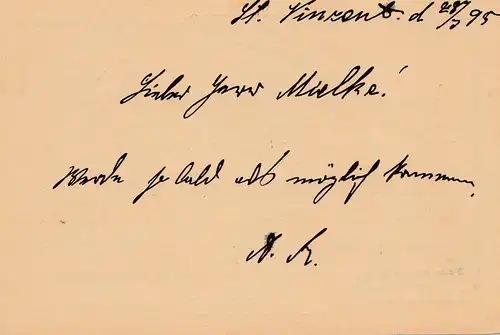 St. Vinzent. d 28/3 95
Lieber Herr Mielke!
Werde so bald als möglich kommen.
A. K.